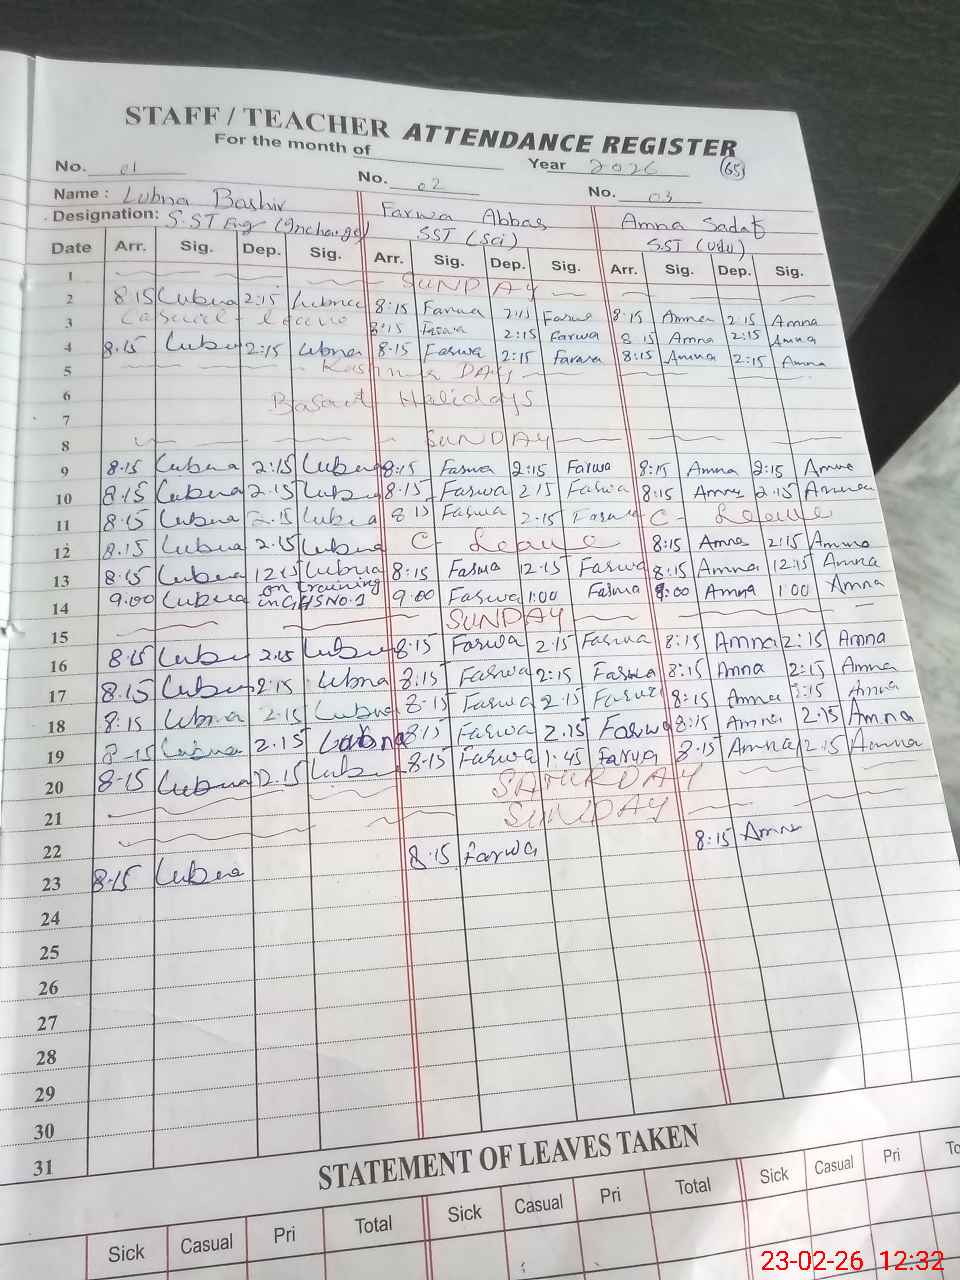 STAFF / TEACHER ATTENDANCE REGISTER
For the month of Year 2026 65
No. 01 No. 02 No. 03
Name : Lubna Bashir Farwa Abbas Amna Sadaf
Designation: S.ST Eng (Incharge) SST (Sci) S.ST (Urdu)
Date Arr. Sig. Dep. Sig. Arr. Sig. Dep. Sig. Arr. Sig. Dep. Sig.
1 SUNDAY
2 8:15 Lubna 2:15 Lubna 8:15 Farwa 2:15 Farwa 8:15 Amna 2:15 Amna
3 Casual - Leave 8:15 Farwa 2:15 Farwa 8:15 Amna 2:15 Amna
4 8:15 Lubna 2:15 Lubna 8:15 Farwa 2:15 Farwa 8:15 Amna 2:15 Amna
5 Kashmir DAY
6 Basant Halidays
7
8 SUNDAY
9 8:15 Lubna 2:15 Lubna 8:15 Farwa 2:15 Farwa 8:15 Amna 2:15 Amna
10 8:15 Lubna 2:15 Lubna 8:15 Farwa 2:15 Farwa 8:15 Amna 2:15 Amna
11 8:15 Lubna 2:15 Lubna 8:15 Farwa 2:15 Farwa C- Leave
12 8:15 Lubna 2:15 Lubna C- Leave 8:15 Amna 2:15 Amna
13 8:15 Lubna 12:15 Lubna 8:15 Farwa 12:15 Farwa 8:15 Amna 12:15 Amna
14 9:00 Lubna on training in GHS NO.1 9:00 Farwa 1:00 Farwa 9:00 Amna 1:00 Amna
15 SUNDAY
16 8:15 Lubna 2:15 Lubna 8:15 Farwa 2:15 Farwa 8:15 Amna 2:15 Amna
17 8:15 Lubna 2:15 Lubna 8:15 Farwa 2:15 Farwa 8:15 Amna 2:15 Amna
18 8:15 Lubna 2:15 Lubna 8:15 Farwa 2:15 Farwa 8:15 Amna 2:15 Amna
19 8:15 Lubna 2:15 Lubna 8:15 Farwa 2:15 Farwa 8:15 Amna 2:15 Amna
20 8:15 Lubna 12:15 Lubna 8:15 Farwa 1:45 Farwa 8:15 Amna 12:15 Amna
21 SATURDAY
22 SUNDAY
23 8:15 Lubna 8:15 Farwa 8:15 Amna
24
25
26
27
28
29
30
31
STATEMENT OF LEAVES TAKEN
Sick Casual Pri Total Sick Casual Pri Total Sick Casual Pri To
23-02-26 12:32